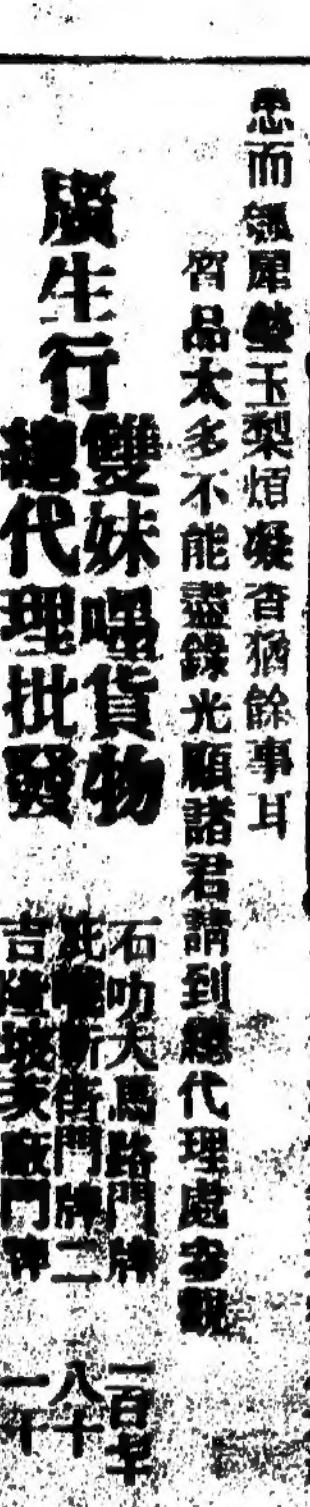 思而瓠犀瑩玉梨煩凝香猶餘事耳
貨品太多不能盡錄光顧諸君請到總代理處參觀
廣生行
雙妹嘜貨物
總代理批發
石叻大馬路門牌一百
街門牌二八十
吉隆坡灰廠門牌